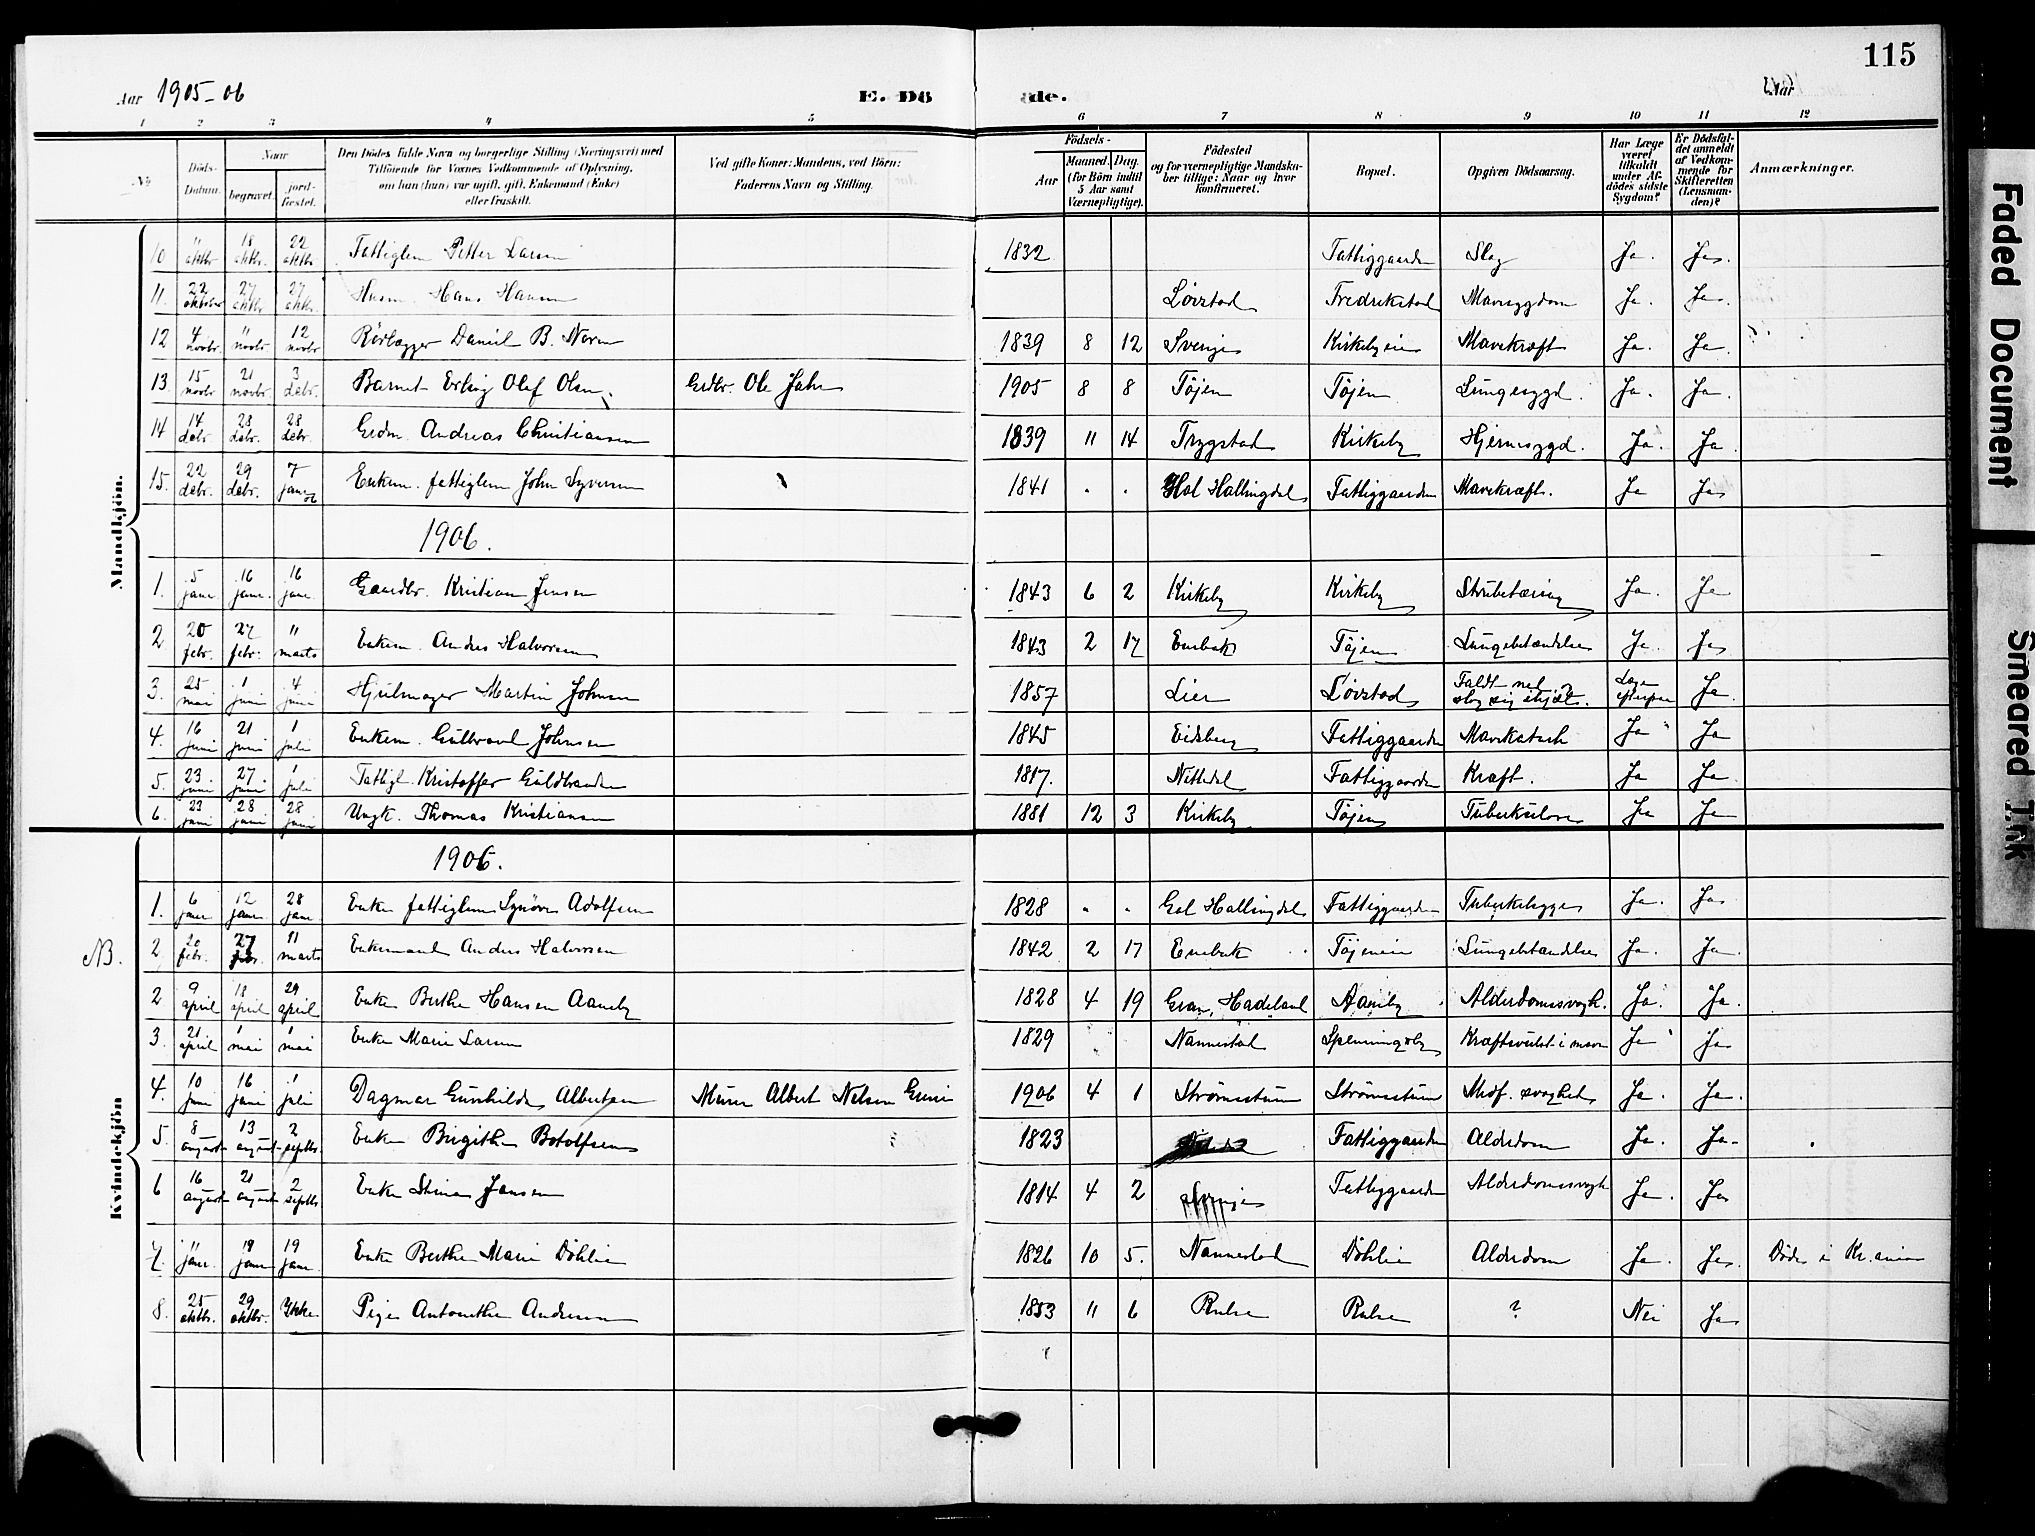 115
Aar 1905-06 E. Dö de. Aar
1 2 3 4 5 6 7 8 9 10 11 12
No
Döds-Datum.
Naar
begravet.
jord-fæstet.
Den Dödes fulde Navn og borgerlige Stilling (Næringsvei) med
Tilföiende for Voxnes Vedkommende af Oplysning,
om han (hun) var ugift, gift, Enkemand (Enke)
eller fraskilt.
Ved gifte Koner: Mandens, ved Börn:
Faderens Navn og Stilling.
Födsels-
Aar
Maaned. Dag.
(for Börn indtil
5 Aar samt
Værnepligtige).
Födested
og for værnepligtige Mandska-
ber tillige: Naar og hvor
konfirmeret.
Bopæl.
Opgiven Dödsaarsag.
Har Læge
været
tilkaldt
under Af-
dödes sidste
Sygdom?
Er Dödsfal-
det anmeldt
af Vedkom-
mende for
Skifteretten
(Lensman-
den)?
Anmærkninger.
Mandkjön.
10 oktbr 18 oktbr. 22 oktbr Fattiglem Petter Larsen 1832 Fattiggaarden Slag Ja. Ja.
11. 22 oktober 27 oktbr 27 oktbr. Husm. Hans Hansen Løvstad Fredrikstad Mavesygdom Ja. Ja.
12 4 novbr. " novbr. 12 novbr Rørlægger Daniel B. Noren 1839 8 12 Sverige Kirkebyeie Mavekræft Ja. Ja.
13. 15 novbr 21 novbr. 3 debr. Barnet Erling Olaf Olsen Grdbr. Ole Jahr 1905 8 8 Tøjen Tøjen Lungesygd. Ja. Ja.
14 14 debr. 28 debr. 28 debr. Grdm. Andreas Christiansen 1839 11 14 Trygstad Kirkeby Hjernesygd. Ja. Ja.
15. 22 debr. 29 debr. 7 janr 06 Enkem. fattiglem John Syversen 1841 . . Hol Hallingdal Fattiggaarden Mavekræft. Ja Ja
1906.
1. 5 janr. 16 janr. 16 janr. Gaardbr. Kristian Jensen 1843 6 2 Kirkeby Kirkeby Strubetæring Ja. Ja
2 20 febr. 27 febr. " marts Enkem. Anders Halvorsen 1843 2 17 Enebak Tøjen Lungebetændelse Ja. Ja
3. 25 mai 1 juni 4 juni Hjulmager Martin Johnsen 1857 Lier Løvstad Faldt ned slog sig ihjæl. Ja
4. 16 juni 21 juni 1 juli Enkem. Gulbrand Johnsen 1845 Eidsberg Fattiggaarden Mavekatarh Ja Ja
5. 23 juni 27 juni 1 juli Fattigl. Kristoffer Guldbrandsen 1817. Nittedal Fattiggaarden Kræft. Ja Ja
6. 23 juni 28 juni 28 juni Ungk. Thomas Kristiansen 1881 12 3 Kirkeby Tøjen Tuberkulose Ja Ja
Kvindekjön
1906.
1. 6 janr 12 janr. 28 janr Enke fattiglem Synøve Adolfsen 1828 . . Gol Hallingdal Fattiggaarden Ja. Ja
NB. 2 20 febr. 27 febr. 11 marts Enkemand Anders Halvorsen 1842 2 17 Enebak Tøjeneie Lungebetændelse Ja. Ja.
2 9 april 18 april 29 april Enke Berthe Hansen Aaneby 1828 4 19 Gran, Hadeland Aaneby Alderdomssvagh. Ja. Ja.
3. 21 april 1 mai 1 mai Enke Marie Larsen 1829 Nannestad Kræftsvulst i maven Ja Ja
4. 10 juni 16 juni 1 juli Dagmar Gunhilde Albertsen Murer Albert Nelsen 1906 4 1 Strømstum Strømstum Medf. svaghed Ja. Ja.
5. 8 august 13 august 2 septbr. Enke Birgithe Botolfsen 1823 Fattiggaarden Alderdom Ja. Ja.
6 16 august 21 august 2 septbr Enke Stine Jansen 1814 4 2 Sverige Fattiggaarden Alderdomssvagh Ja. Ja
7. 11 janr. 19 janr 19 janr. Enke Berthe Marie Døhlie 1826 10 5. Nannestad Døhlie Alderdom Ja. Ja. Døde i Kr.ania
8. 25 oktbr. 29 oktbr. Ikke Pige Antonethe Andersen 1853 11 6 ? Nei Ja
Faded Document
Smeared Ink